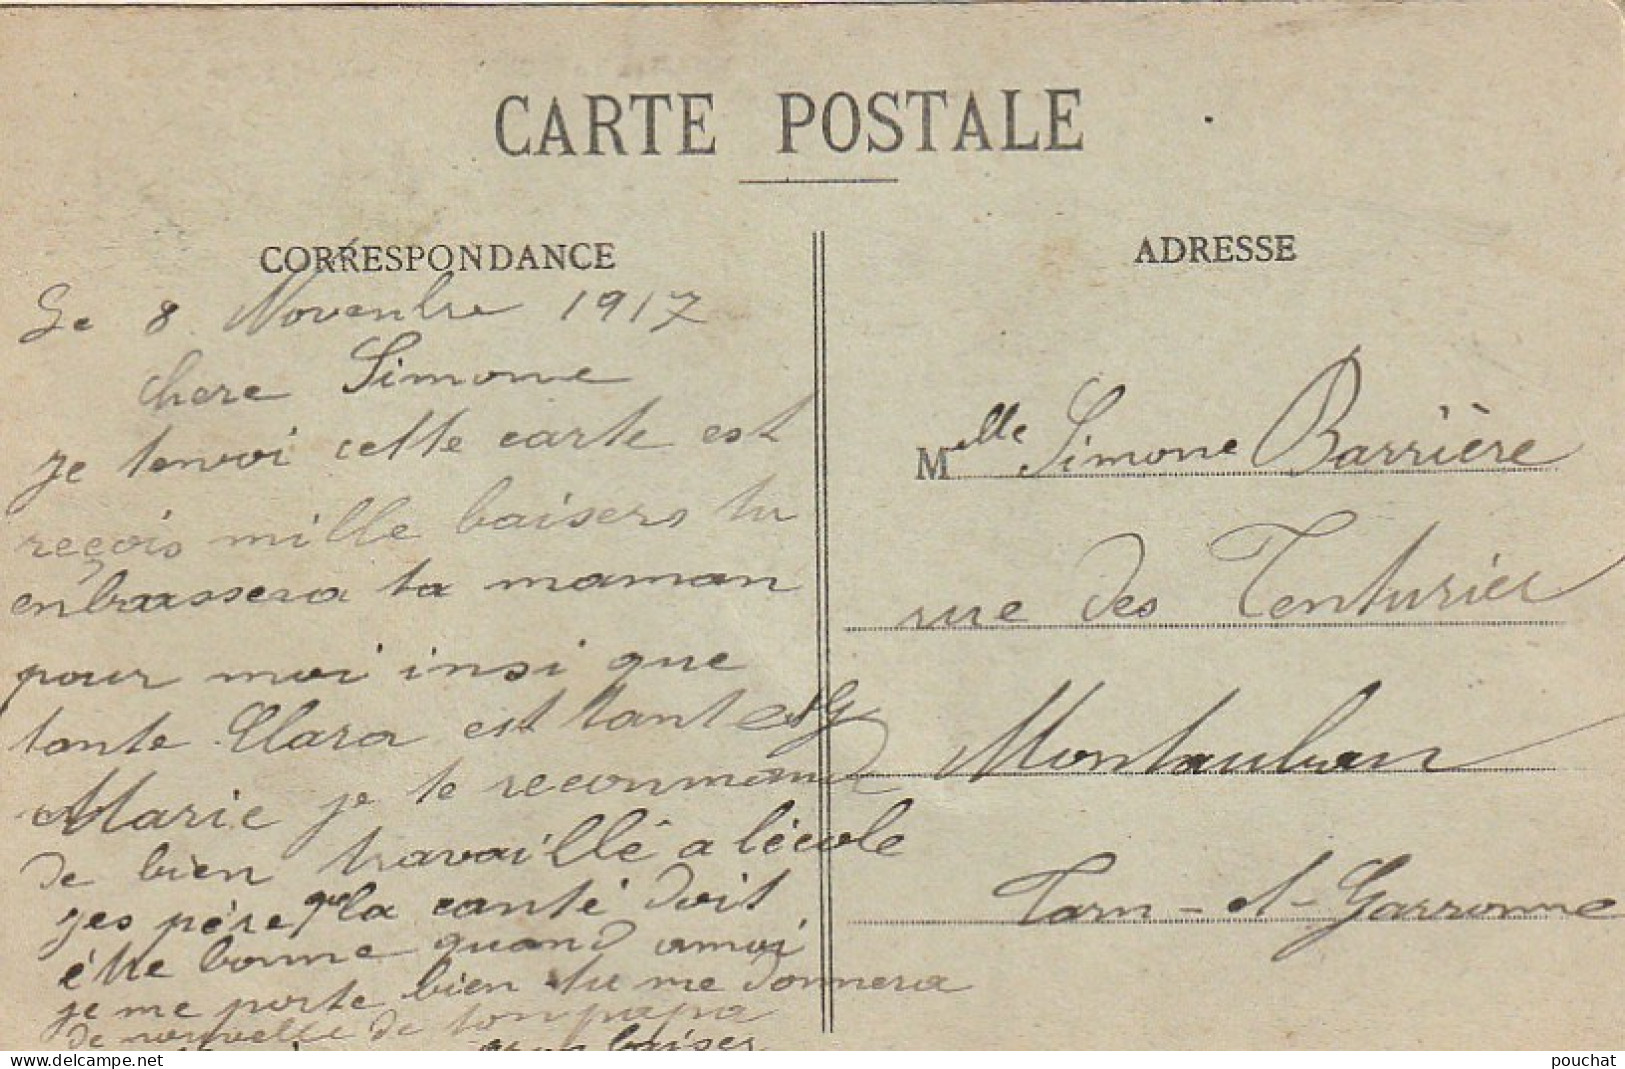 CARTE POSTALE
CORRESPONDANCE
Le 8 Novenbre 1917
chere Simone
je tenvoi cette carte est
reçois mille baisers tu
enbrassera ta maman
pour moi insi que
tante Clara est tante
Marie je te reconmand
de bien travaillé a lécole
jes père que la canté doit
être bonne quand amoi
je me porte bien tu me donnera
de nouvelle de ton papa
gros baiser
ADRESSE
Melle Simone Barrière
rue des Tenturier
Montauban
Tarn-et-Garronne
delcampe.net
pouchat